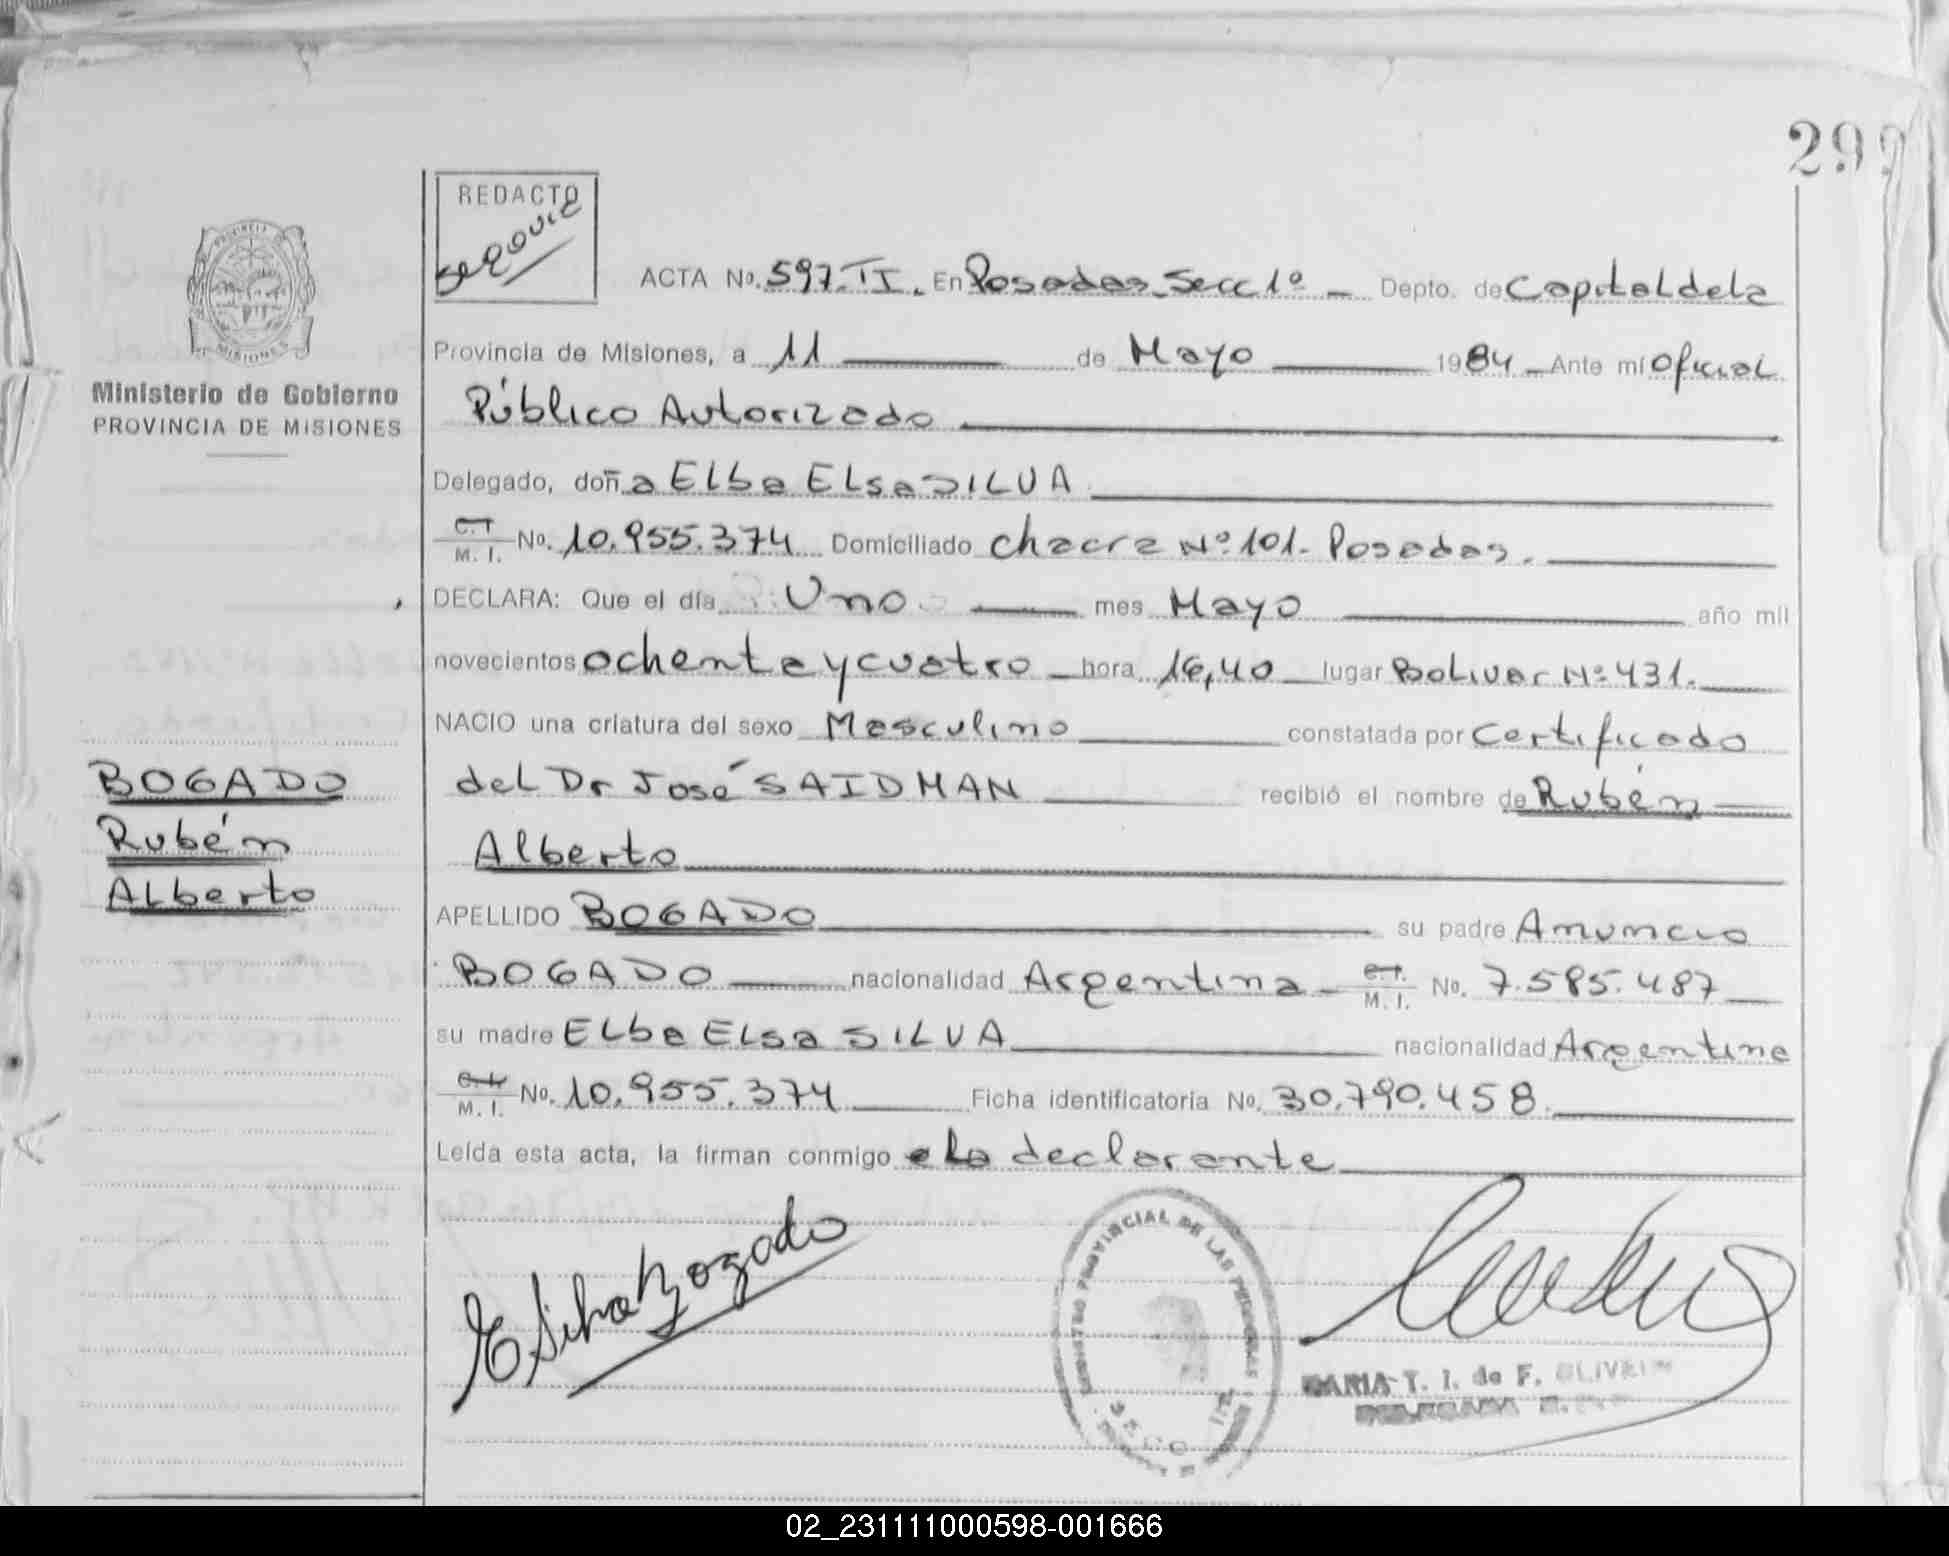 299
REDACTO
Segovia
PROVINCIA
MISIONES
Ministerio de Gobierno
PROVINCIA DE MISIONES
ACTA No. 597.TI. En Posadas Secc 1º Depto. de Capital de la
Provincia de Misiones, a 11 de Mayo 1984 Ante mí Oficial
Público Autorizado
Delegado, doña Elba Elsa SILVA
C.I. M. I. No. 10.955.374 Domiciliado Chacra Nº 101. Posadas.
DECLARA: Que el día Uno mes Mayo año mil
novecientos ochenta y cuatro hora 16,40 lugar Bolivar Nº 431.
NACIO una criatura del sexo Masculino constatada por Certificado
del Dr José SAIDMAN recibió el nombre de Rubén
Alberto
APELLIDO BOGADO su padre Anuncio
BOGADO nacionalidad Argentina C.I. M. I. No. 7.585.487
su madre Elba Elsa SILVA nacionalidad Argentina
C.I. M. I. No. 10.955.374 Ficha identificatoria No. 30.790.458
Leída esta acta, la firman conmigo la declarante
BOGADO
Rubén
Alberto
E Silva Bogado
REGISTRO PROVINCIAL DE LAS PERSONAS
MARIA T. I. de F. OLIVEIRA
DELEGADA
02_231111000598-001666